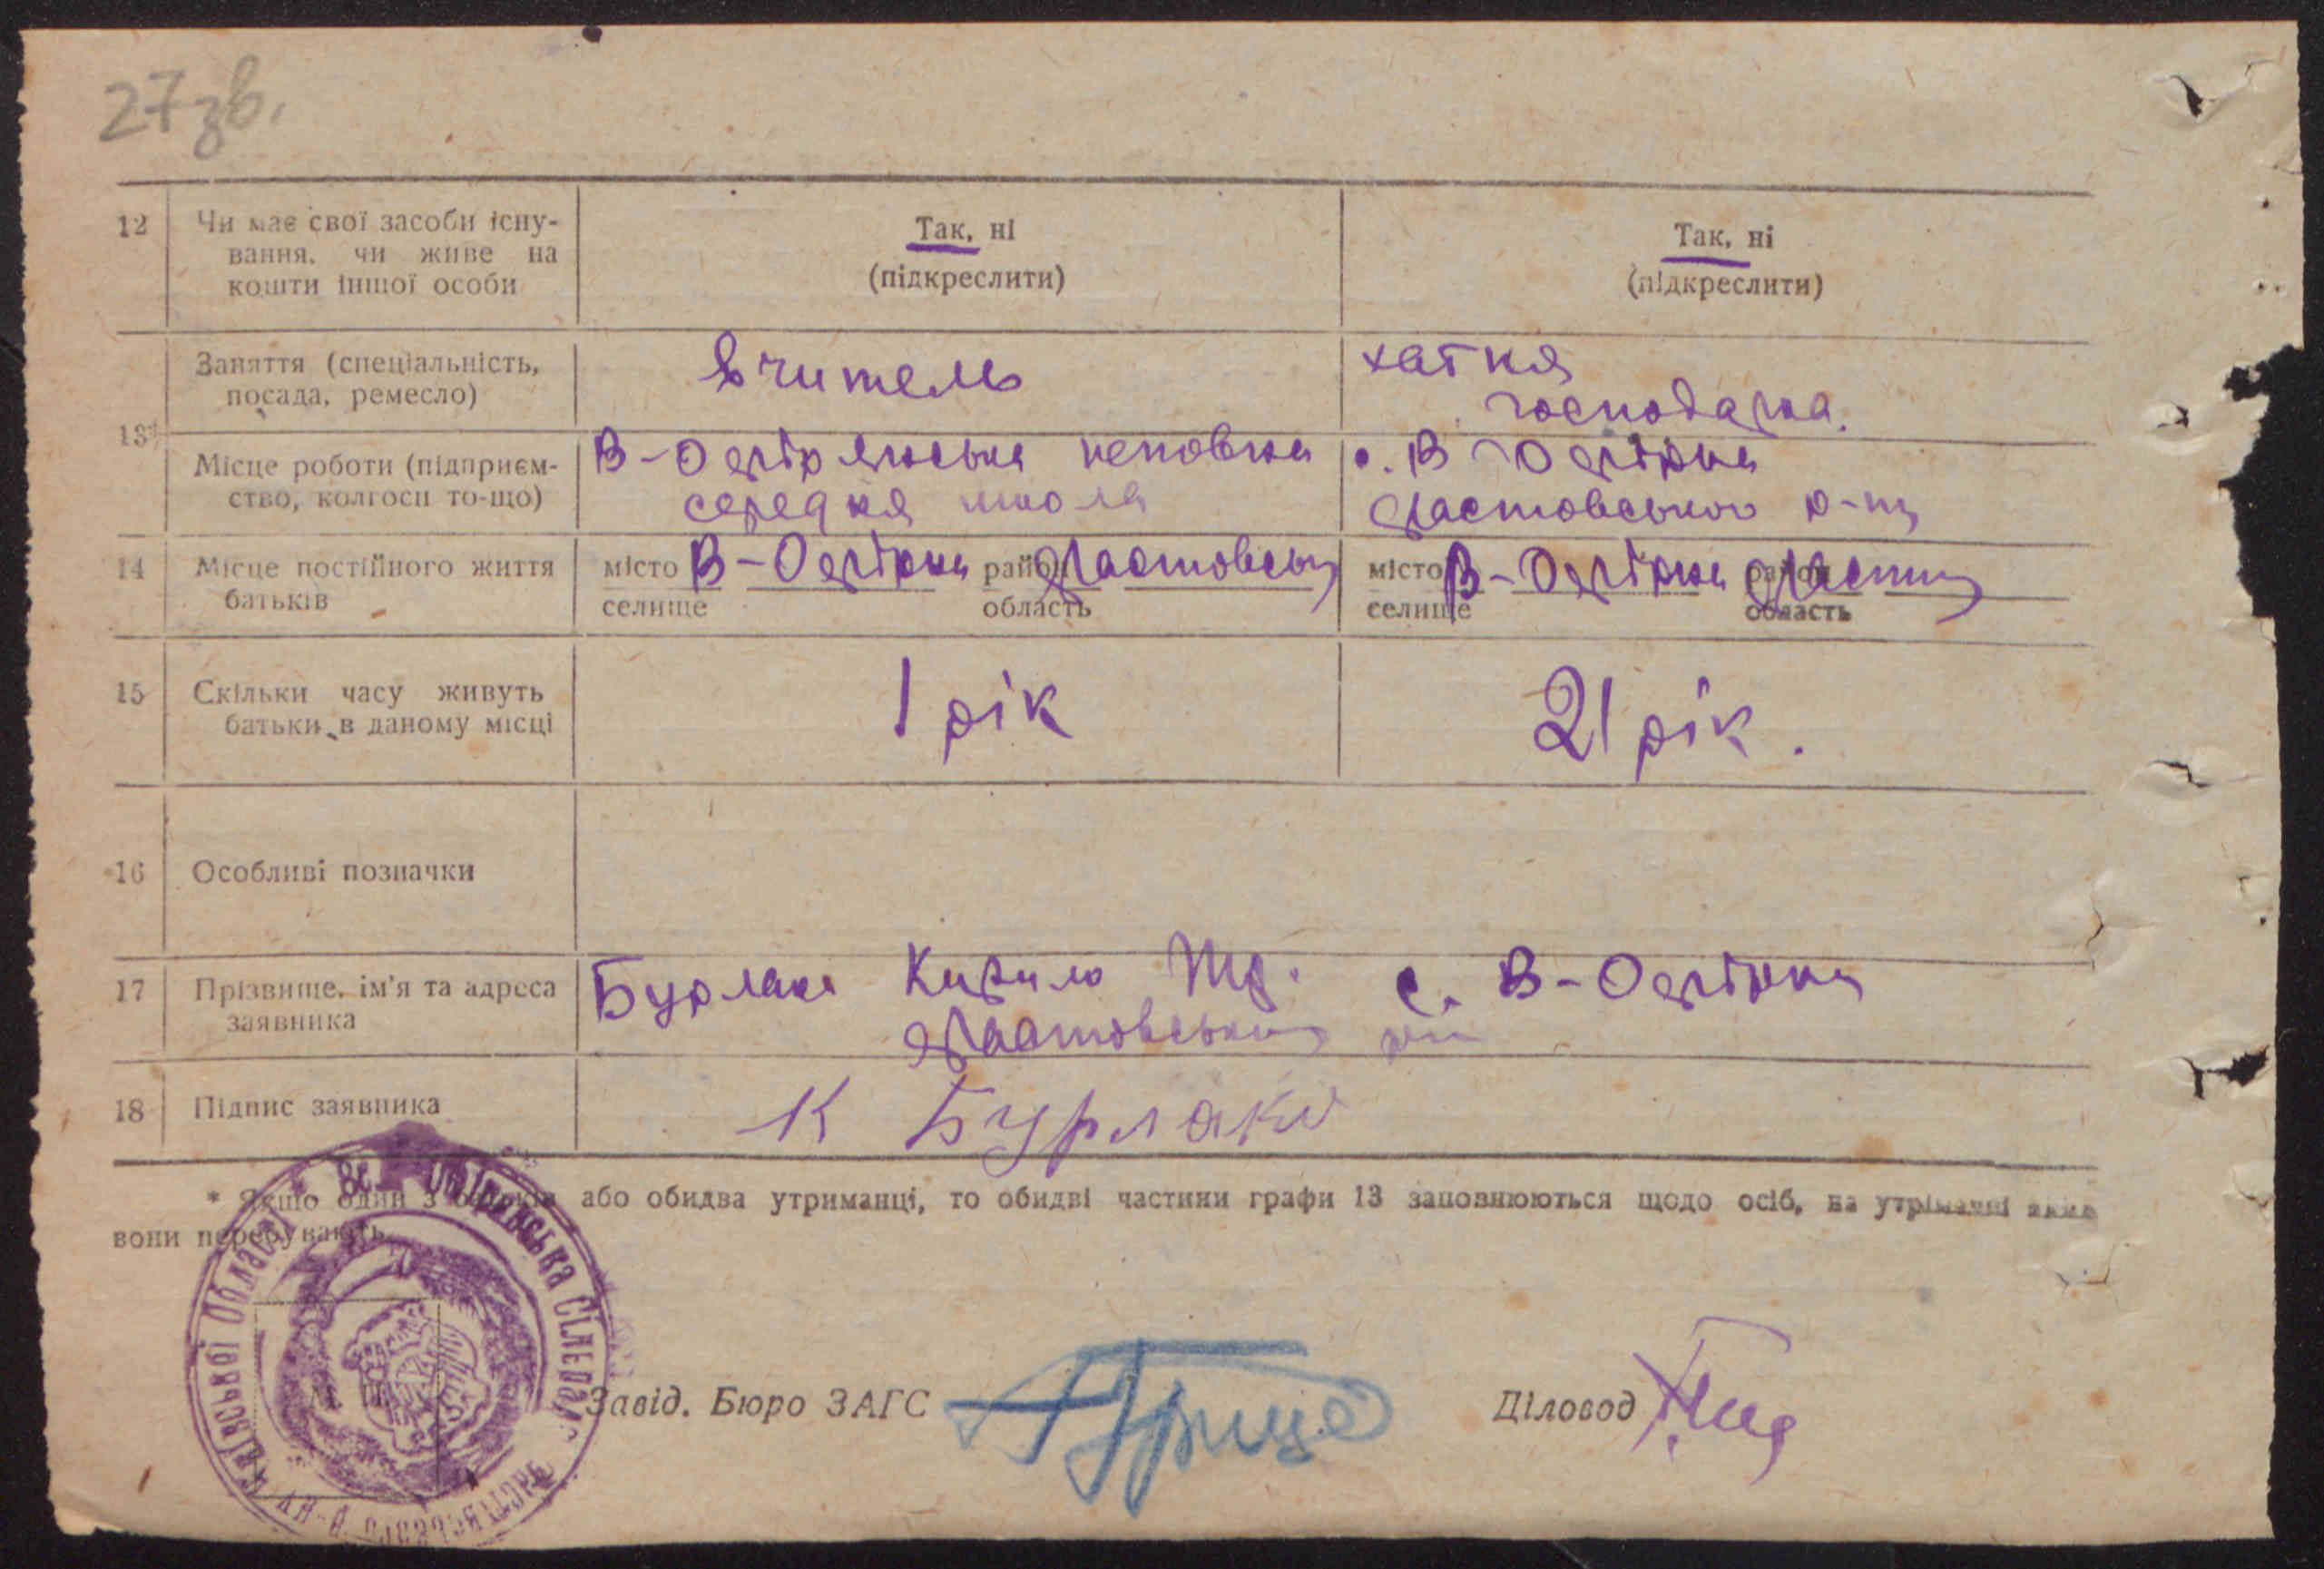 27 зв.
12 Чи має свої засоби існу-
вання, чи живе на
кошти іншої особи
Так, ні
(підкреслити)
Так, ні
(підкреслити)
13*
Заняття (спеціальність,
посада, ремесло)
вчитель
хатня
господарка.
Місце роботи (підприєм-
ство, колгосп то-що)
В-Офірнянська неповна
середня школа
с. В Офірна
Фастовського р-ну
14 Місце постійного життя
батьків
місто В-Офірна район Фастовськ
селище область
місто В-Офірна район
селище область
15 Скільки часу живуть
батьки в даному місці
1 рік
21 рік.
16 Особливі позначки
17 Прізвище, ім'я та адреса
заявника
Бурлака Кирило с. В-Офірна
Фастовський
18 Підпис заявника
К Бурлака
* Якщо один з батьків або обидва утриманці, то обидві частини графи 13 заповнюються щодо осіб, на утриманні яких
вони перебувають.
Київської Області
Сільрада
Фастівського Р-ну
Завід. Бюро ЗАГС
Діловод